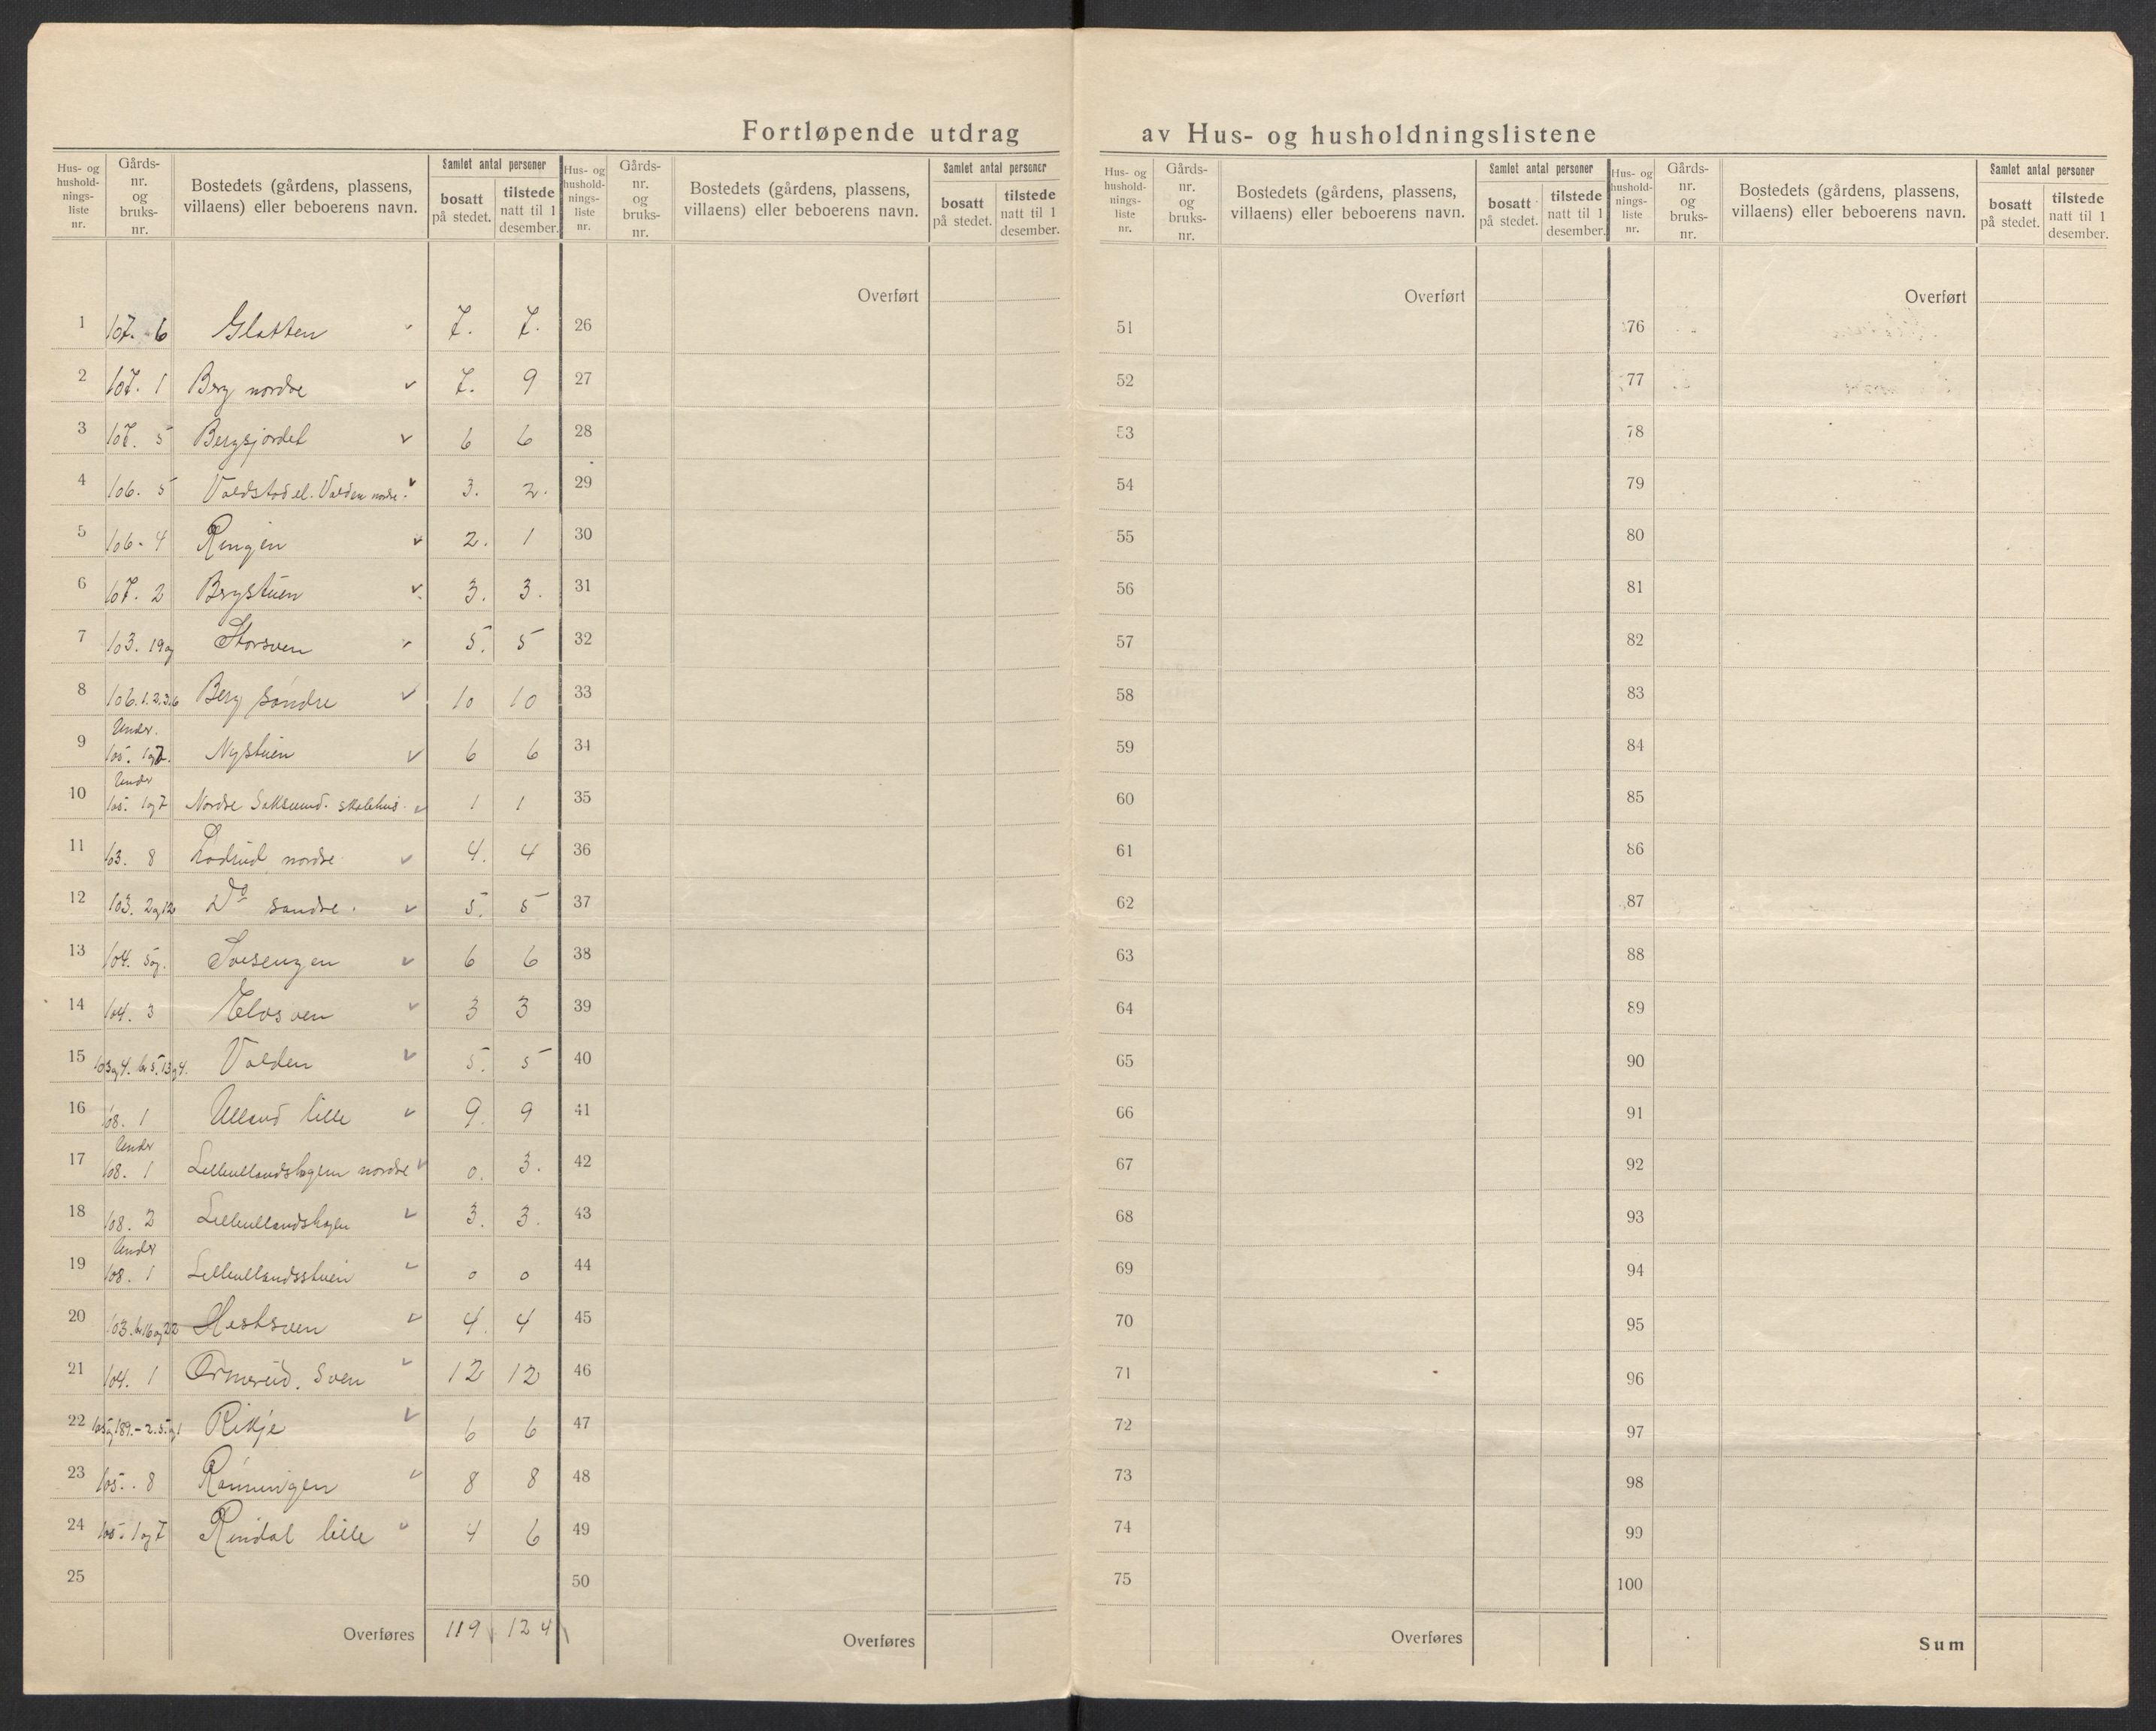 Fortløpende utdrag av Hus- og husholdningslistene
Hus- og hushold-nings-liste nr. Gårds-nr. og bruks-nr. Bostedets (gårdens, plassens, villaens) eller beboerens navn. Samlet antal personer bosatt på stedet. tilstede natt til 1 desember.
1 107. 6 Glatten 7. 7.
2 107. 1 Berg nordre 7. 9
3 107. 5 Bergsjordet 6 6
4 106. 5 3. 2.
5 106. 4 Ringen 2. 1
6 107. 2 Bergstuen 3. 3.
7 103. 19 og Storsven 5. 5
8 106. 1. 2. 3. 6 Berg søndre 10 10
9 Under 105. 1 og 7. Nystuen 6 6
10 Under 105. 1 og 7 Nordre Saksumd. skolehus 1 1
11 103. 8 nordre 4. 4
12 103. 2 og 12 Do søndre. 5. 5
13 104. 5 og. 6 6
14 104. 3 3 3
15 Valden 5. 5
16 108. 1 Ulland lille 9. 9
17 Under 108. 1 Lilleullandshagen nordre 0. 3.
18 108. 2 Lilleullandshagen 3. 3.
19 Under 108. 1 Lilleullandsstuen 0 0
20 103. br 16 og 22 Hestsven 4. 4
21 104. 1 Ormerud. Sven 12 12
22 6 6
23 105. 8 Rønningen 8 8
24 105. 1 og 7 Rindal lille 4 6
25
Overføres 119 124
Hus- og hushold-nings-liste nr. Gårds-nr. og bruks-nr. Bostedets (gårdens, plassens, villaens) eller beboerens navn. Samlet antal personer bosatt på stedet. tilstede natt til 1 desember.
Overført
26
27
28
29
30
31
32
33
34
35
36
37
38
39
40
41
42
43
44
45
46
47
48
49
50
Overføres
Hus- og hushold-nings-liste nr. Gårds-nr. og bruks-nr. Bostedets (gårdens, plassens, villaens) eller beboerens navn. Samlet antal personer bosatt på stedet. tilstede natt til 1 desember.
Overført
51
52
53
54
55
56
57
58
59
60
61
62
63
64
65
66
67
68
69
70
71
72
73
74
75
Overføres
Hus- og hushold-nings-liste nr. Gårds-nr. og bruks-nr. Bostedets (gårdens, plassens, villaens) eller beboerens navn. Samlet antal personer bosatt på stedet. tilstede natt til 1 desember.
Overført
76
77
78
79
80
81
82
83
84
85
86
87
88
89
90
91
92
93
94
95
96
97
98
99
100
Sum